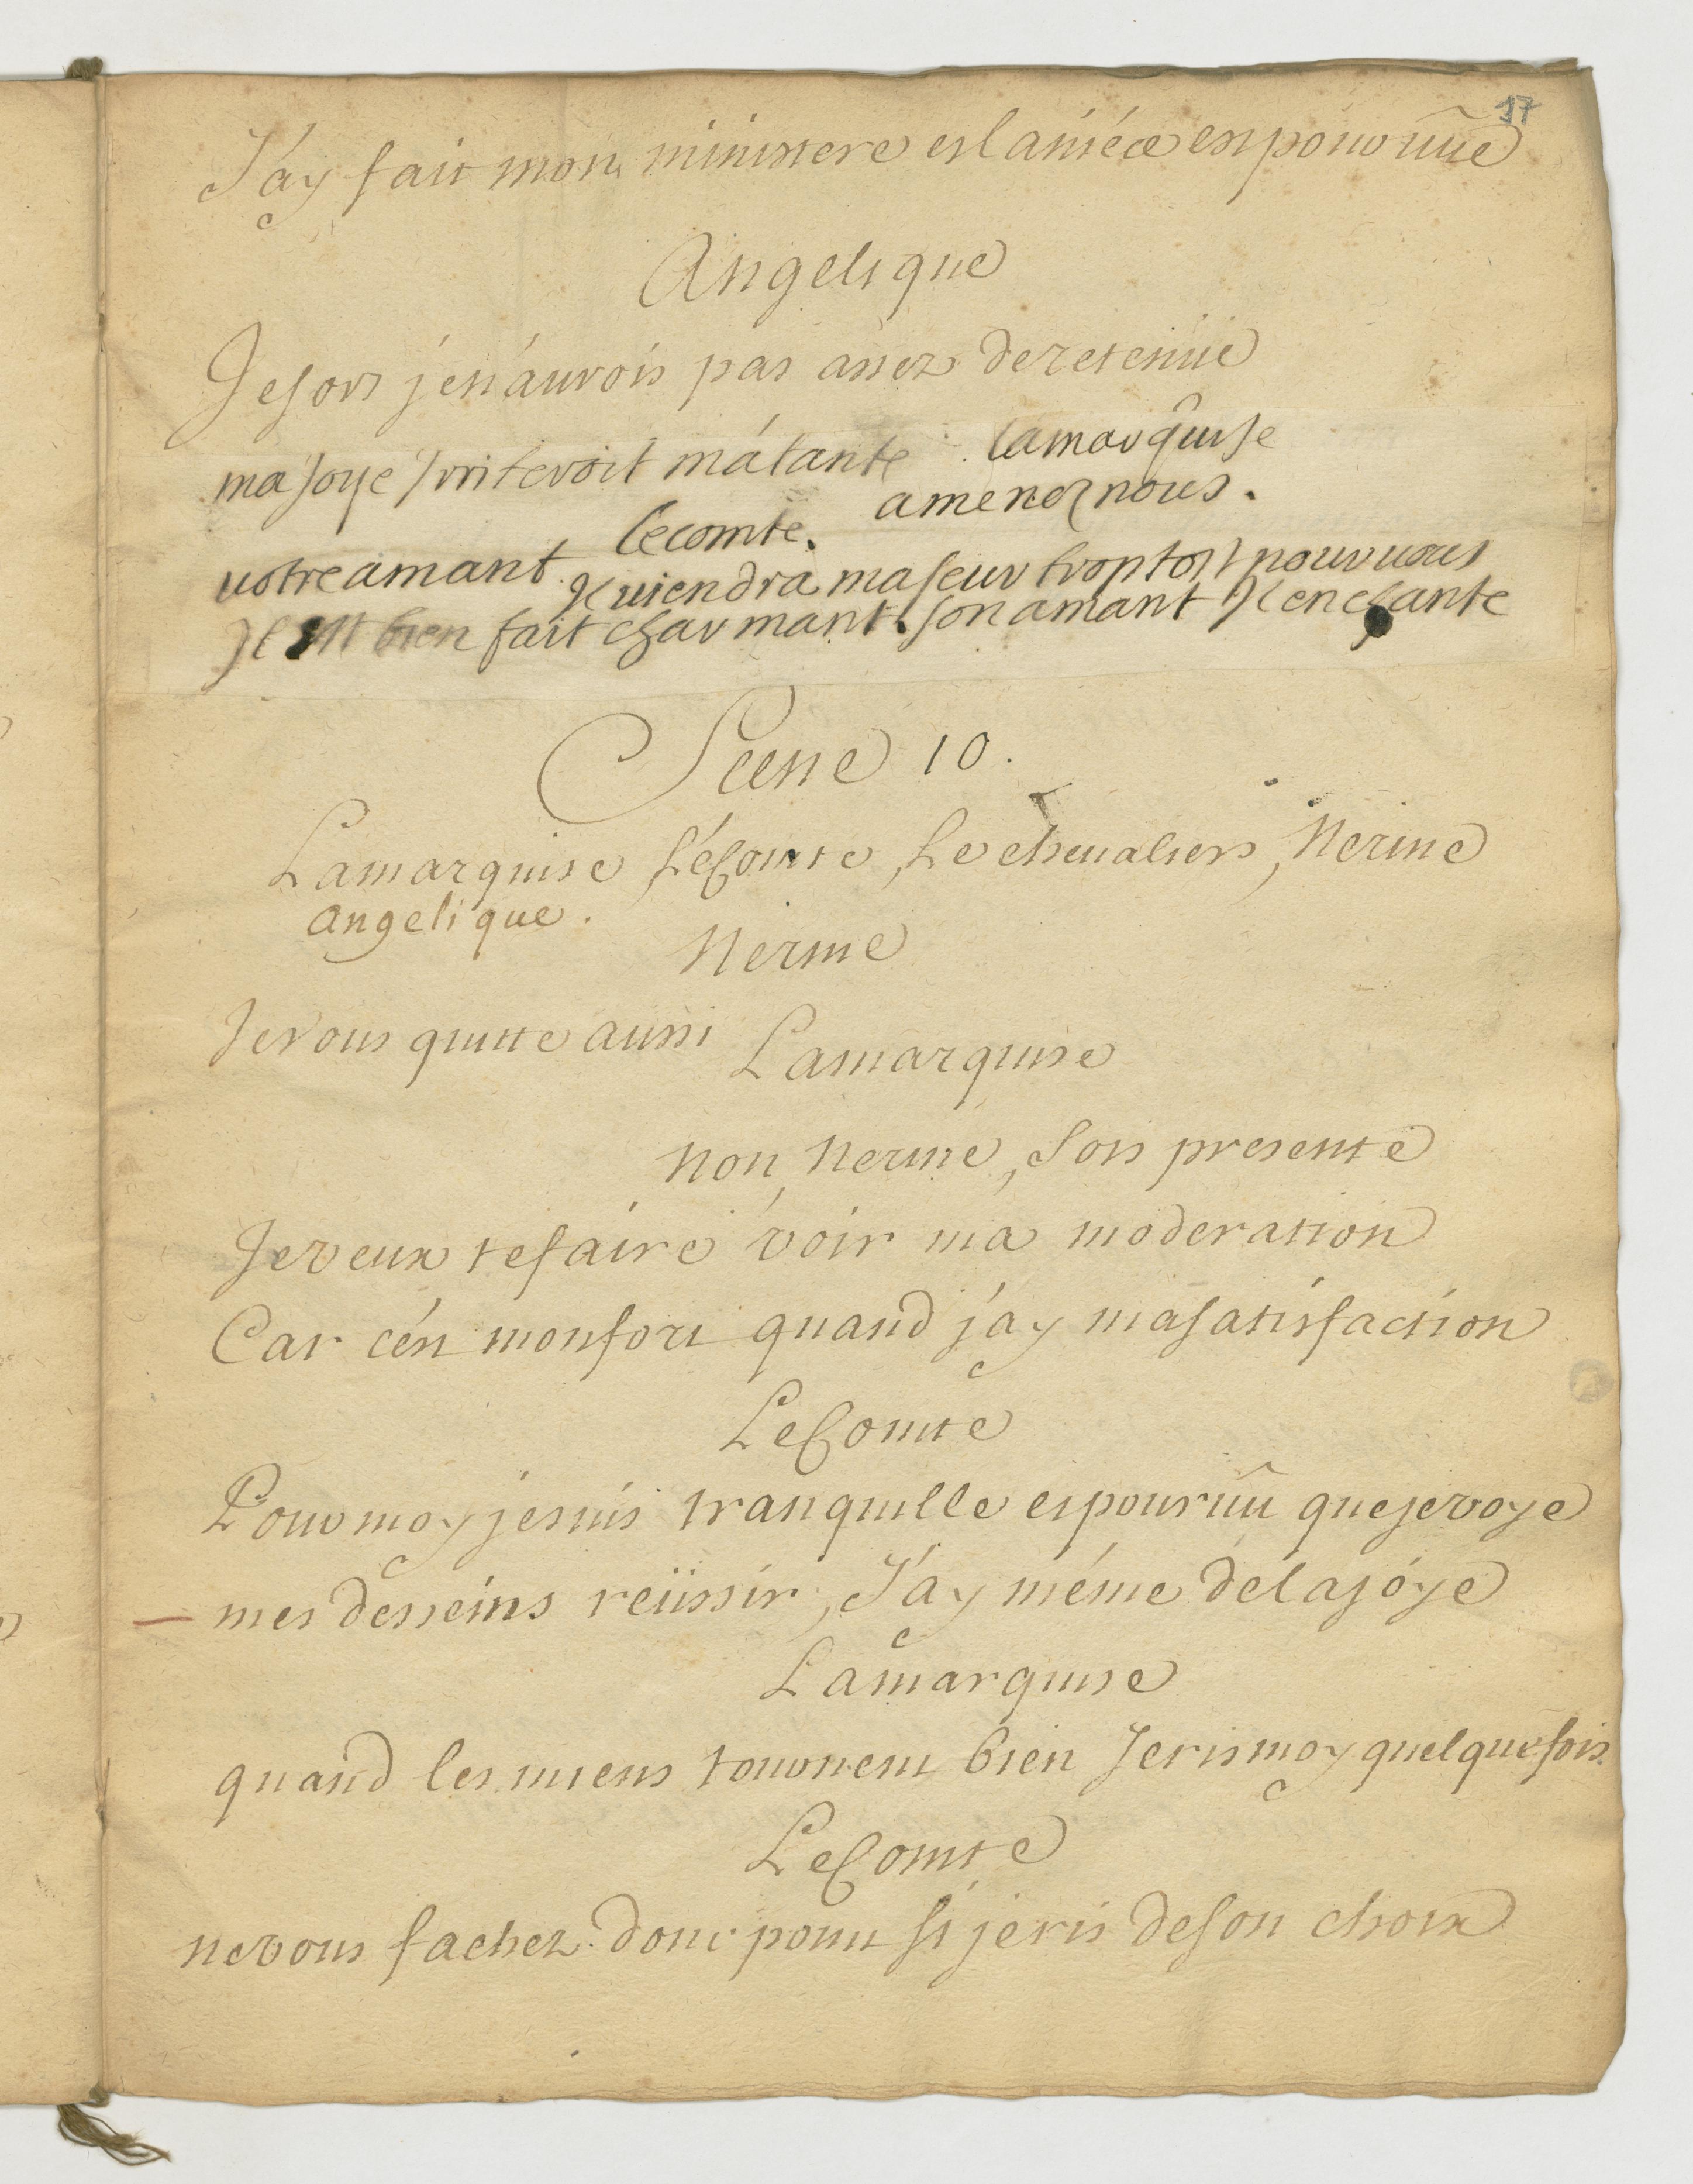 17
J'ay fait mon ministere et la niéce est pourvüe
Angelique
Je sors je n'aurois pas assez de retenüe
ma joye Irriteroit ma tante . la marquise
amenez nous .
le comte .
votre amant .
Il viendra ma seur trop tost pour vous
Il est bien fait charmant . son amant Il enchante
Scene 10 .
La marquise Le Comte , Le chevalier , Nerine
angelique .
Nerine
Je vous quitte aussi
La marquise
Non , Nerine , sois presente
Je veux te faire voir ma moderation
Car c'est mon fort quand j'ay ma satisfaction
Le Comte
Pour moy je suis tranquille et pourvû que je voye
mes desseins reüssir , J'ay méme de la joye
La marquise
quand les miens tournent bien Je ris moy quelque fois .
Le Comte
ne vous fachez donc point si je ris de son choix